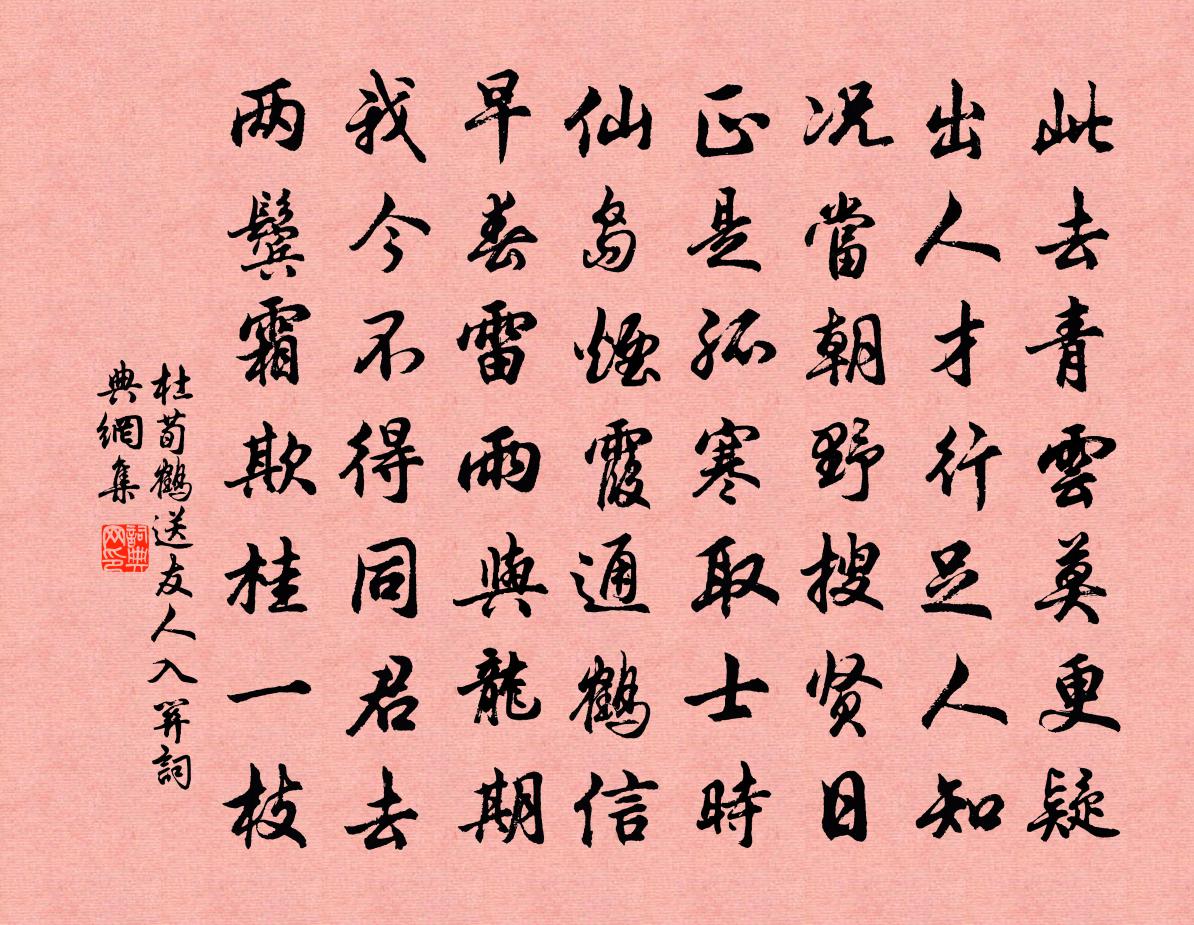 此去青雲莫更疑
出人才行足人知
况當朝野搜贤日
正是孤寒取士時
仙岛煙霞通鶴信
早春雷雨與龍期
我今不得同君去
两鬢霜欺桂一枝
杜荀鶴送友人入关詞
典網集
詞典网印